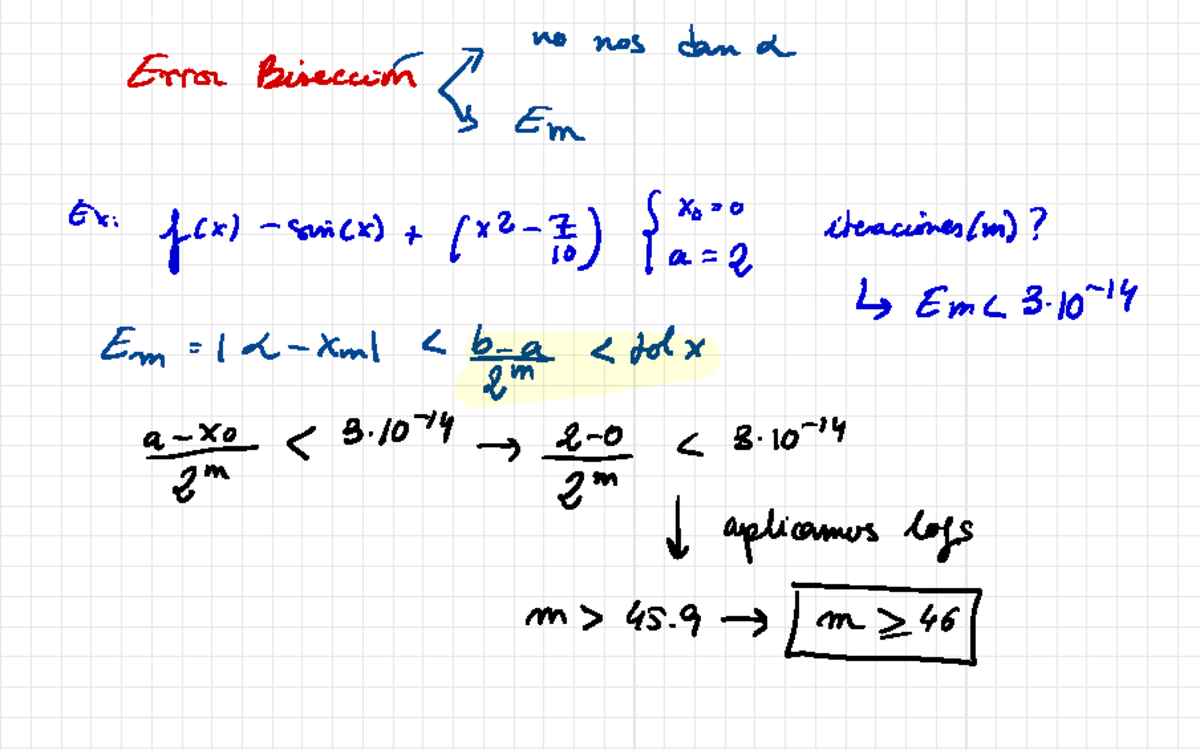 Error Bisección
no nos dan α
Em
Ex: f(x) - sin(x) + (x2 - 7/10) { x0 = 0
a = 2
iteraciones (m)?
↳ Em < 3·10^-14
Em = |α - xm| < b-a/2^m < tol x
a-x0/2^m < 3·10^-14 → 2-0/2^m < 3·10^-14
↓ aplicamos logs
m > 45.9 → m ≥ 46